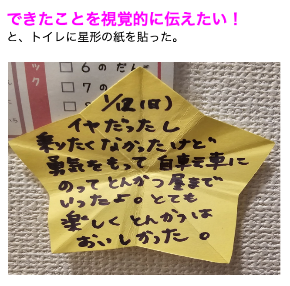 できたことを視覚的に伝えたい！
と、トイレに星形の紙を貼った。
ック
6のだん
7の
1/12(日)
イヤだったし
乗りたくなかったけど
勇気をもって自車モ車に
のってとんかつ屋まで
いったよ。とても
楽しくとんかつは
おいしかった。